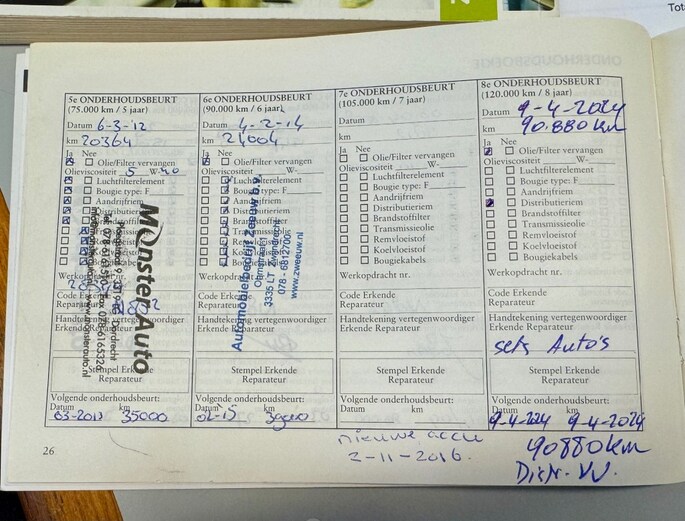 Tot
5e ONDERHOUDSBEURT
(75.000 km / 5 jaar)
Datum 6-3-12
km 20364
Ja Nee
Olie/Filter vervangen
Olieviscositeit 5 W-40
Luchtfilterelement
Bougie type: F
Aandrijfriem
Distributieriem
Werkopdracht nr.
Code Erkende
Reparateur
Handtekening vertegenwoordiger
Erkende Reparateur
Stempel Erkende
Reparateur
Volgende onderhoudsbeurt:
Datum km
03-2013 35000
Monster Auto
www.monsterauto.nl
6e ONDERHOUDSBEURT
(90.000 km / 6 jaar)
Datum 4-2-14
km 21004
Ja Nee
Olie/Filter vervangen
Olieviscositeit W-
Luchtfilterelement
Bougie type: F
Aandrijfriem
Distributieriem
Werkopdracht
Code Erkende
Reparateur
Handtekening vertegenwoordiger
Erkende Reparateur
Stempel Erkende
Reparateur
Volgende onderhoudsbeurt:
Datum km
02-15
Automobielbedrijf Zeeuw b.v.
3335 LT Zwijndrecht
078 - 6812700
www.zweeuw.nl
7e ONDERHOUDSBEURT
(105.000 km / 7 jaar)
Datum
km
Ja Nee
Olie/Filter vervangen
Olieviscositeit W-
Luchtfilterelement
Bougie type: F
Aandrijfriem
Distributieriem
Brandstoffilter
Transmissieolie
Remvloeistof
Koelvloeistof
Bougiekabels
Werkopdracht nr.
Code Erkende
Reparateur
Handtekening vertegenwoordiger
Erkende Reparateur
Stempel Erkende
Reparateur
Volgende onderhoudsbeurt:
Datum km
nieuwe accu
2-11-2016.
8e ONDERHOUDSBEURT
(120.000 km / 8 jaar)
Datum 9-4-2024
km 90.880 km
Ja Nee
Olie/Filter vervangen
Olieviscositeit W-
Luchtfilterelement
Bougie type: F
Aandrijfriem
Distributieriem
Brandstoffilter
Transmissieolie
Remvloeistof
Koelvloeistof
Bougiekabels
Werkopdracht nr.
Code Erkende
Reparateur
Handtekening vertegenwoordiger
Erkende Reparateur
sets Auto's
Stempel Erkende
Reparateur
Volgende onderhoudsbeurt:
Datum km
9-4-2024 9-4-2024
90880km
26